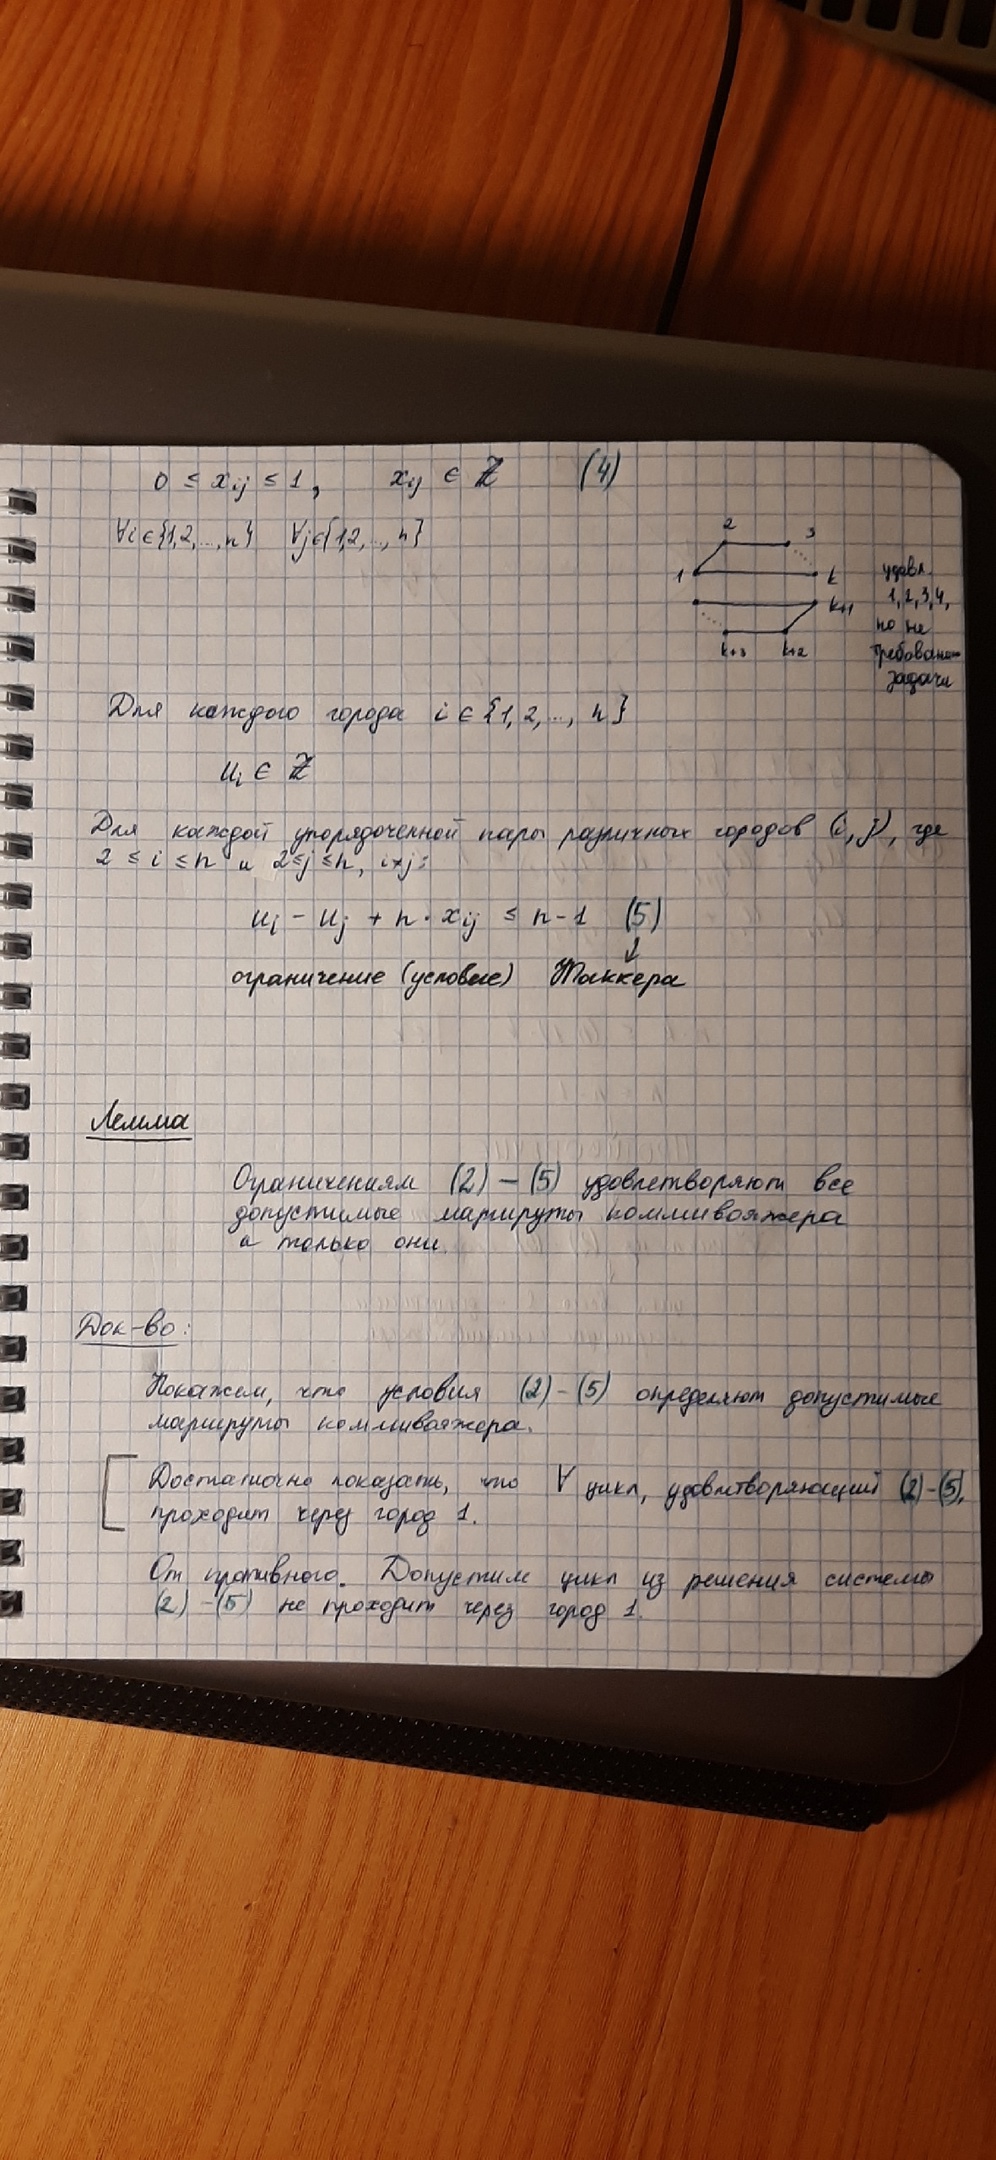 0 ≤ xij ≤ 1, xij ∈ ℤ (4)
∀i∈{1,2,...,n} ∀j∈{1,2,...,n}
2 3
1 k
k+1
k+3 k+2
удовл.
1,2,3,4,
но не
требовани-
задачи
Для каждого города i ∈ {1, 2, ..., n}
ui ∈ ℤ
Для каждой упорядоченной пары различных городов (i, j), где
2 ≤ i ≤ n и 2≤j≤n, i≠j:
ui - uj + n · xij ≤ n-1 (5)
↓
ограничение (условие) Таккера
Лемма
Ограничениям (2) – (5) удовлетворяют все
допустимые маршруты коммивояжера
и только они.
Док-во:
Покажем, что условия (2)-(5) определяют допустимые
маршруты коммивояжера.
Достаточно показать, что ∀ цикл, удовлетворяющий (2)-(5),
проходит через город 1.
От противного. Допустим цикл из решения системы
(2) - (5) не проходит через город 1.